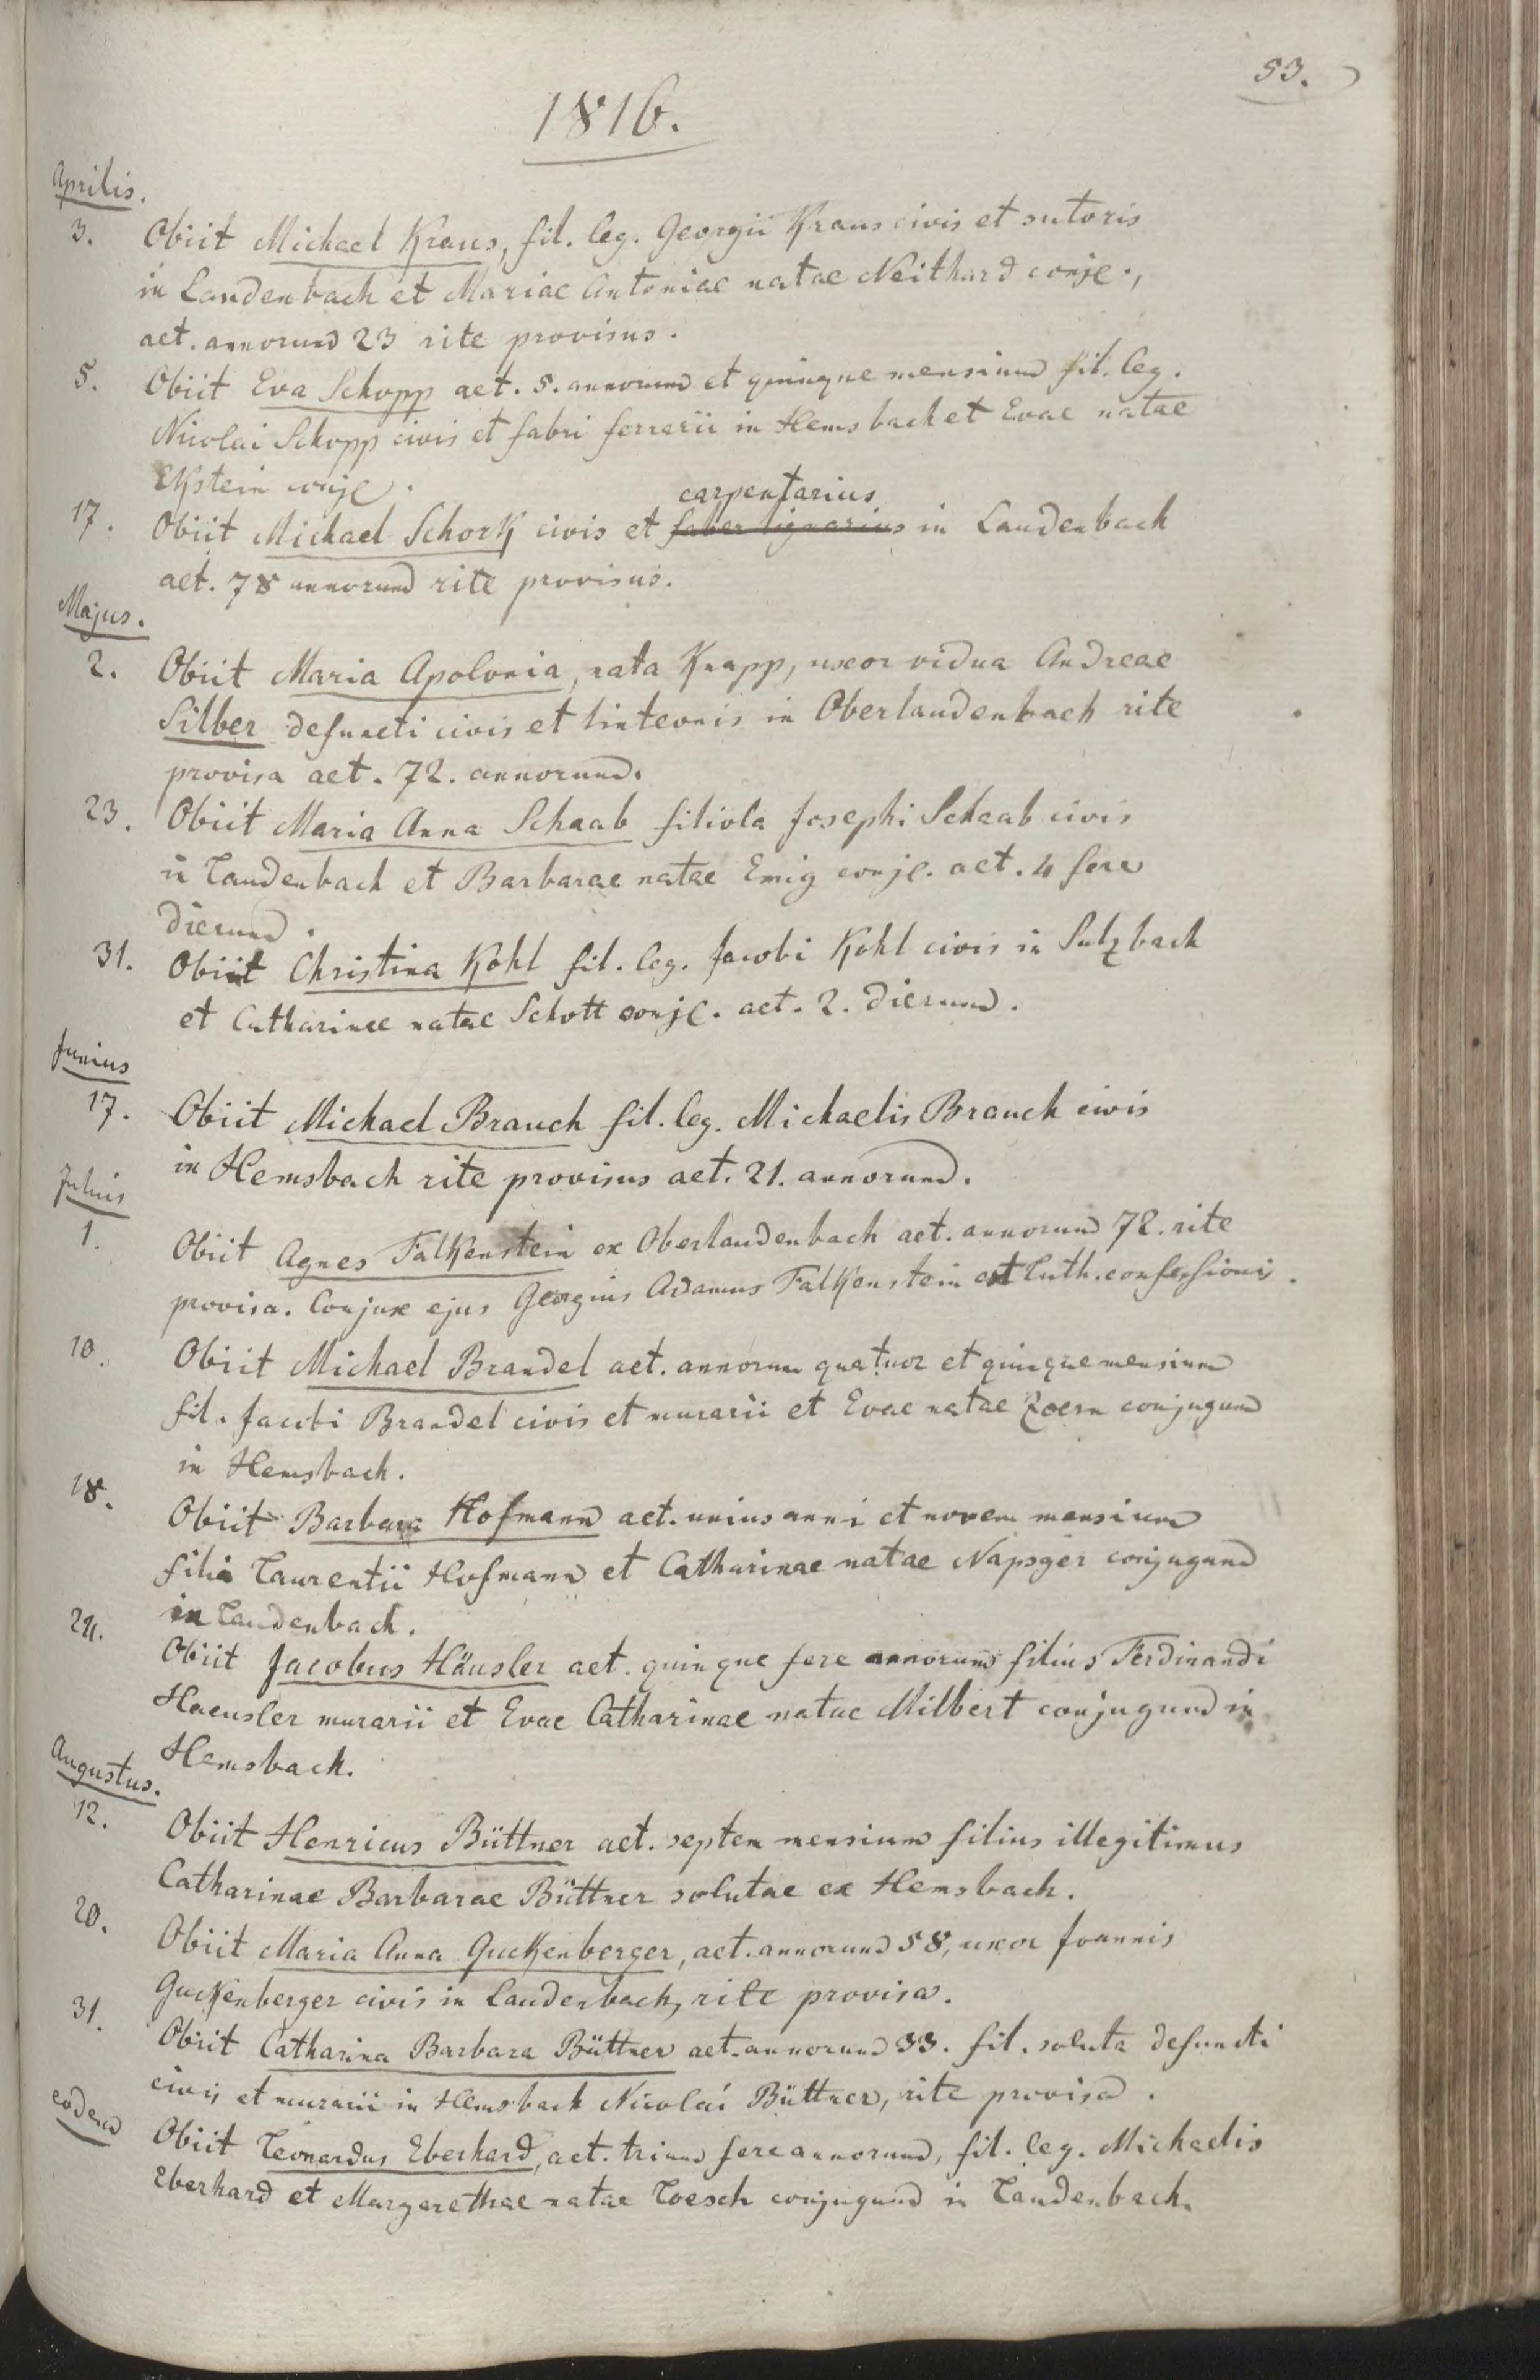 53.
1816.
Aprilis.
3. Obiit Michael Kraus, fil. leg. Georgii Kraus civis et sutoris
in Laudenbach et Mariae Antoniae natae Neithard conjc.,
aet. annorum 23 rite provisus.
5. Obiit Eva Schopp aet. 5. annorum et quinque mensium fil. leg.
Nicolai Schopp civis et fabri ferrarii in Hemsbach et Evae natae
Ekstein conjc.
carpentarius
17. Obiit Michael Schork civis et faber lignarius in Laudenbach
aet. 78 annorum rite provisus.
Majus.
2. Obiit Maria Apolonia, nata Knapp, uxor vidua Andreae
Silber defuncti civis et linteonis in Oberlaudenbach rite
provisa aet. 72. annorum.
23. Obiit Maria Anna Schaab filiola Josephi Schaab civis
in Laudenbach et Barbarae natae Emig conjc. aet. 4 fere
dierum.
31. Obiit Christina Kohl fil. leg. Jacobi Kohl civis in Sulzbach
et Catharinae natae Schott conjc. aet. 2. dierum.
Junius
17. Obiit Michael Brauch fil. leg. Michaelis Brauch civis
in Hemsbach rite provisus aet. 21. annorum.
Julius
1. Obiit Agnes Falkenstein ex Oberlaudenbach aet. annorum 72. rite
provisa. Conjux ejus Georgius Adamus Falkenstein est luth. confessionis.
10. Obiit Michael Brandel aet. annorum quatuor et quinque mensium
fil. Jacobi Brandel civis et murarii et Evae natae Zoern conjugum
in Hemsbach.
18. Obiit Barbara Hofmann aet. unius anni et novem mensium
filia Laurentii Hofmann et Catharinae natae Napsger conjugum
in Laudenbach.
24. Obiit Jacobus Häusler aet. quinque fere annorum filius Ferdinandi
Haeusler murarii et Evae Catharinae natae Milbert conjugum in
Hemsbach.
Augustus.
12. Obiit Henricus Büttner aet. septem mensium filius illegitimus
Catharinae Barbarae Büttner solutae ex Hemsbach.
20. Obiit Maria Anna Guckenberger, aet. annorum 58, uxor Joannis
Guckenberger civis in Laudenbach, rite provisa.
31. Obiit Catharina Barbara Büttner aet. annorum 33. fil. soluta defuncti
civis et murarii in Hemsbach Nicolai Büttner, rite provisa.
eodem Obiit Leonardus Eberhard, aet. trium fere annorum, fil. leg. Michaelis
Eberhard et Margarethae natae Loesch conjugum in Laudenbach.